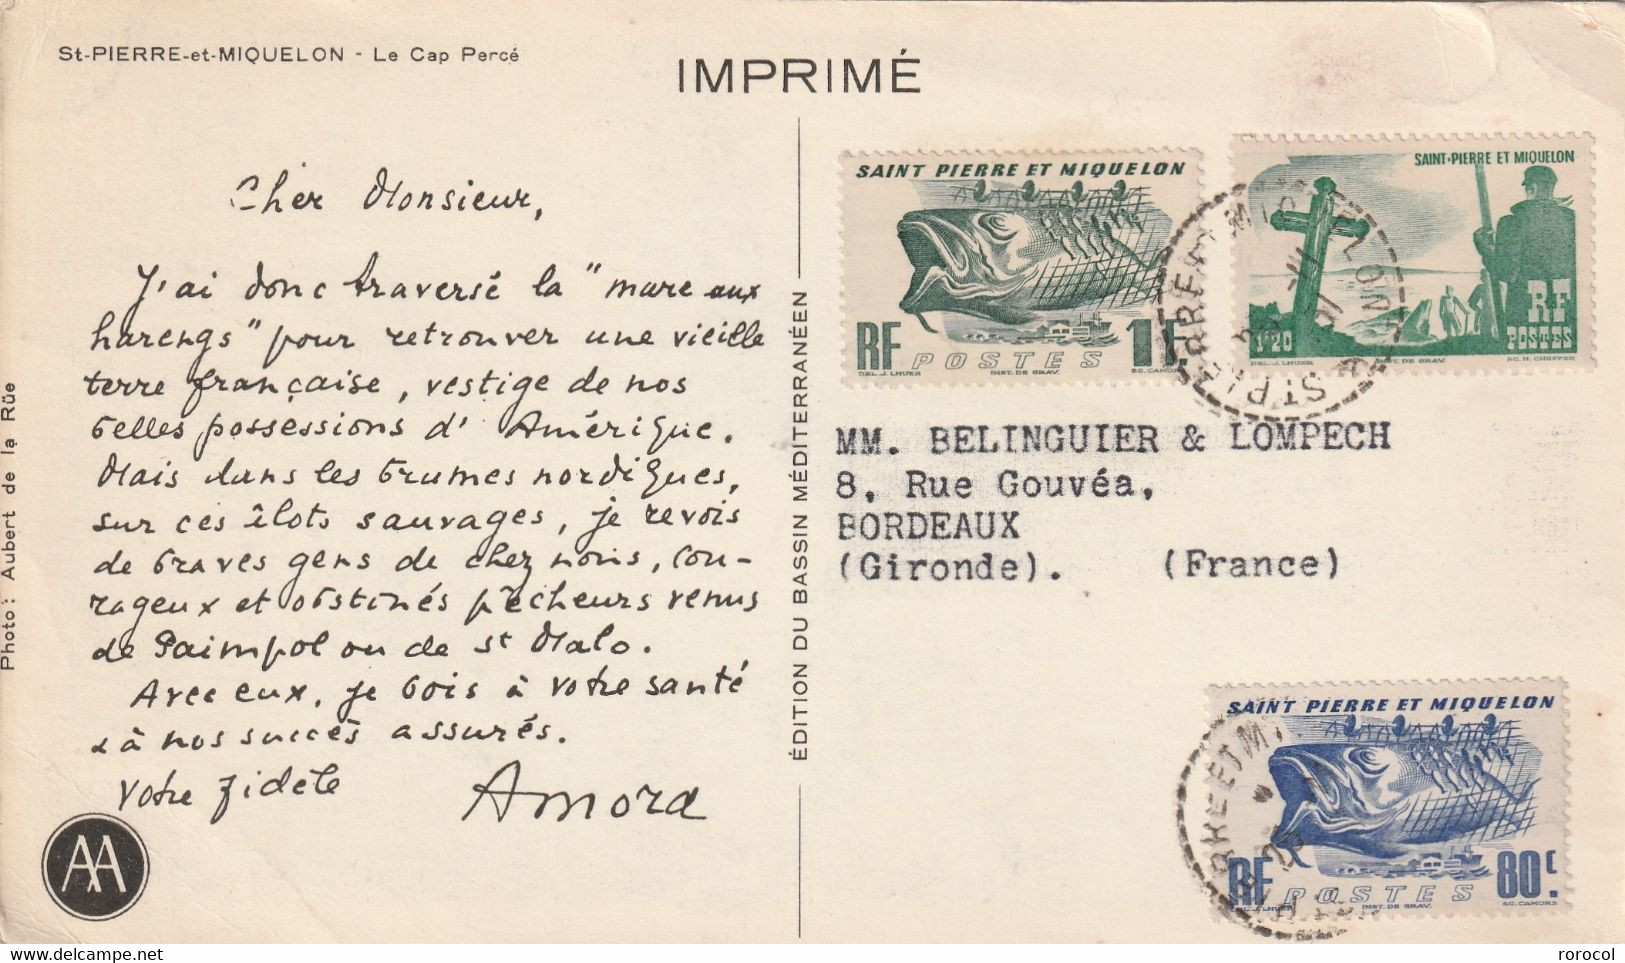 St-PIERRE-et-MIQUELON - Le Cap Percé
IMPRIMÉ
Cher Monsieur,
J'ai donc traversé la "mare aux
harengs" pour retrouver une vieille
terre française, vestige de nos
belles possessions d'Amérique.
Mais dans les brumes nordiques,
sur ces îlots sauvages, je revois
de braves gens de chez nous, cou-
rageux et obstinés pêcheurs venus
de Paimpol ou de St Malo.
Avec eux, je bois à votre santé
& à nos succès assurés.
Votre fidèle
Amora
AA
Photo: Aubert de la Rüe
ÉDITION DU BASSIN MÉDITERRANÉEN
SAINT PIERRE ET MIQUELON
RF POSTES 1F
DEL. J. LHUER INST. DE GRAV. SC. CAMORS
SAINT-PIERRE ET MIQUELON
RF
1F20 POSTES
DEL. J. LHUER INST. DE GRAV. SC. H. CHEFFER
ST PIERRE ET MIQUELON
MM. BELINGUIER & LOMPECH
8, Rue Gouvéa,
BORDEAUX
(Gironde). (France)
SAINT PIERRE ET MIQUELON
RF POSTES 80c.
DEL. J. LHUER INST. DE GRAV. SC. CAMORS
delcampe.net
rorocol